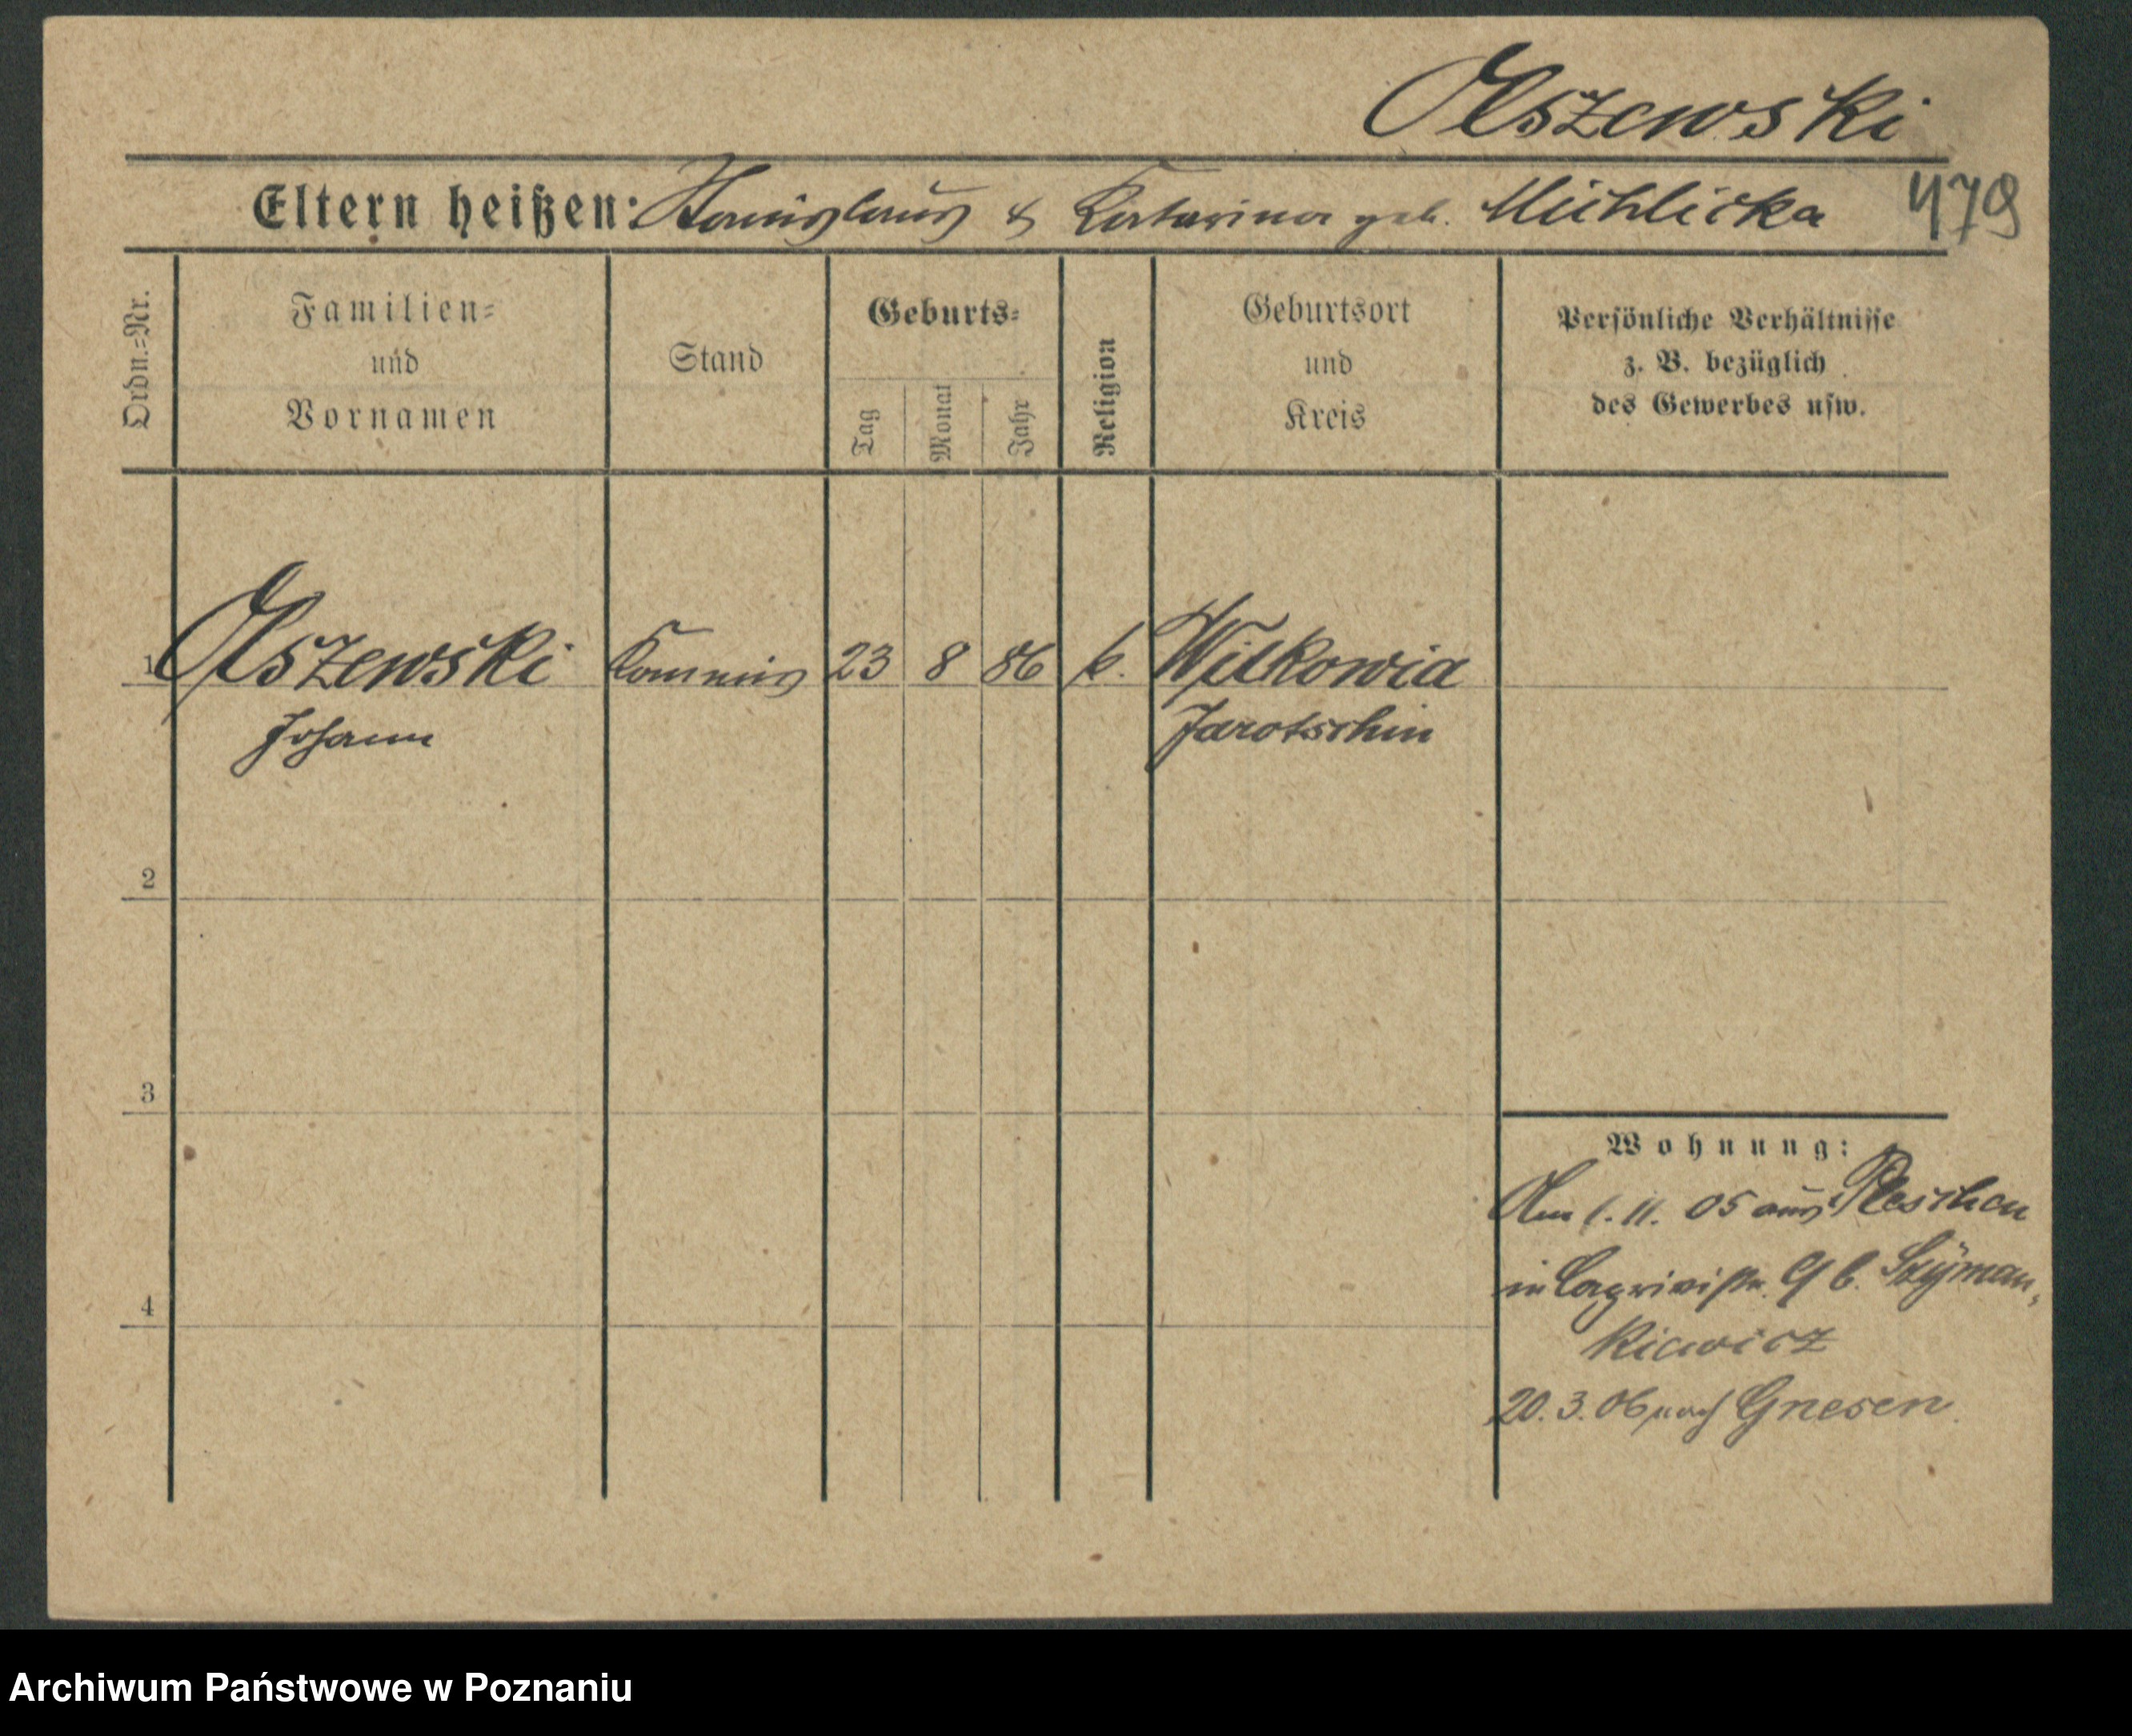 Olszewski
Eltern heißen: Stanislaus & Katarina geb. Michlicka 479
Ordn.-Nr.
Familien-
und
Vornamen
Stand
Geburts-
Tag
Monat
Jahr
Religion
Geburtsort
und
Kreis
Persönliche Verhältnisse
z. B. bezüglich
des Gewerbes usw.
1 Olszewski Kommis 23 8 86 k. Wilkowia
Johann Jarotschin
2
3
4
Wohnung:
Am 1. 11. 05 aus Pleschen
in 9 b. Szyman-
kiewicz
20. 3. 06 nach Gnesen
Archiwum Państwowe w Poznaniu